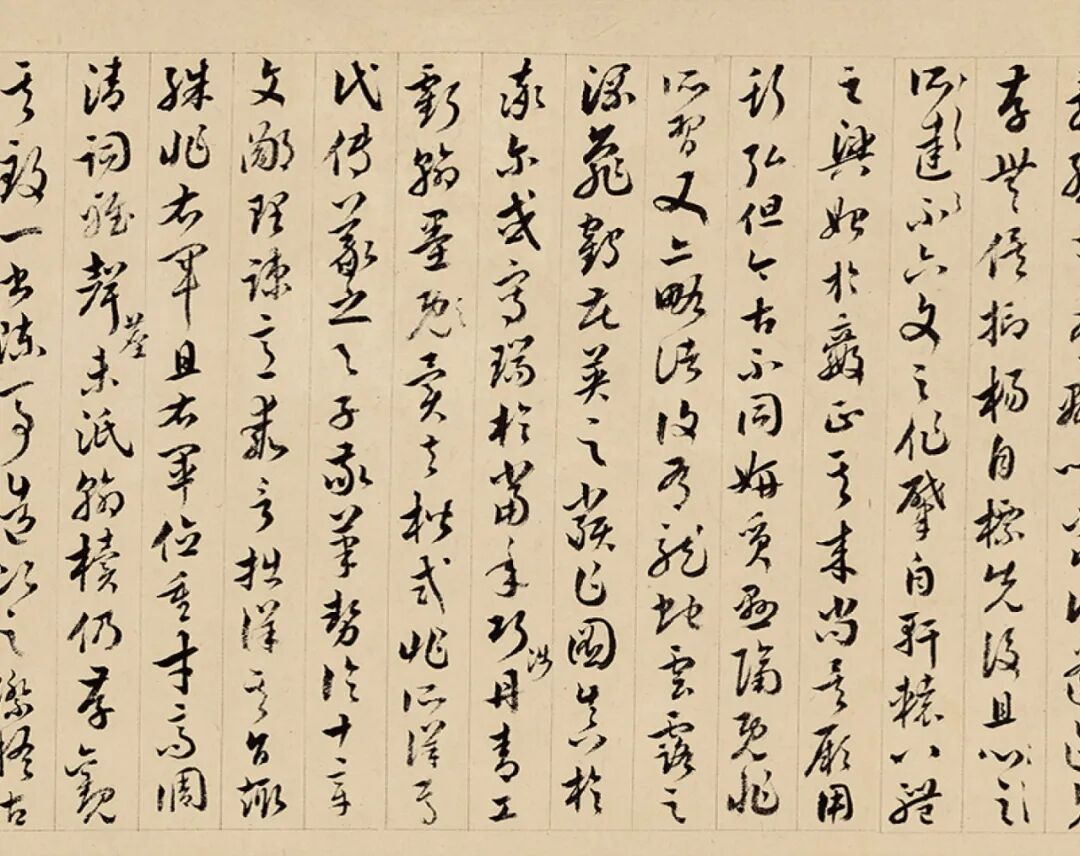 存無俟抑揚自標先後且心之
所達不六文之作肇自軒轅八體
之興始於嬴正其來尚矣厥用
斯弘但今古不同妍質懸隔既非
所習又亦略諸復有龍蛇雲露之
流龜鶴花英之類乍圖真於
率爾或寫瑞於當年巧涉丹青工
虧翰墨既異夫楷式非所詳焉
代傳羲之與子敬筆勢論十章
文鄙理疎意乖言拙詳其旨趣
殊非右軍且右軍位重才高調
清詞雅聲塵未泯翰牘仍存觀
夫致一書陳一事造次之際稽古